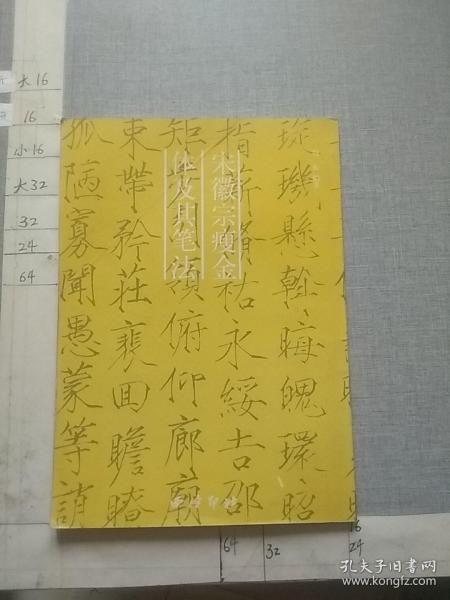 宋徽宗瘦金
体及其笔法
璇玑悬斡晦魄環昭
指薪脩祜永綏吉邵
矩步引領俯仰廊廟
束帶矜莊裵回瞻眺
孤陋寡聞愚蒙等誚
大16
16
小16
大32
32
24
64
64
32
16
24
孔夫子旧书网
www.kongfz.com